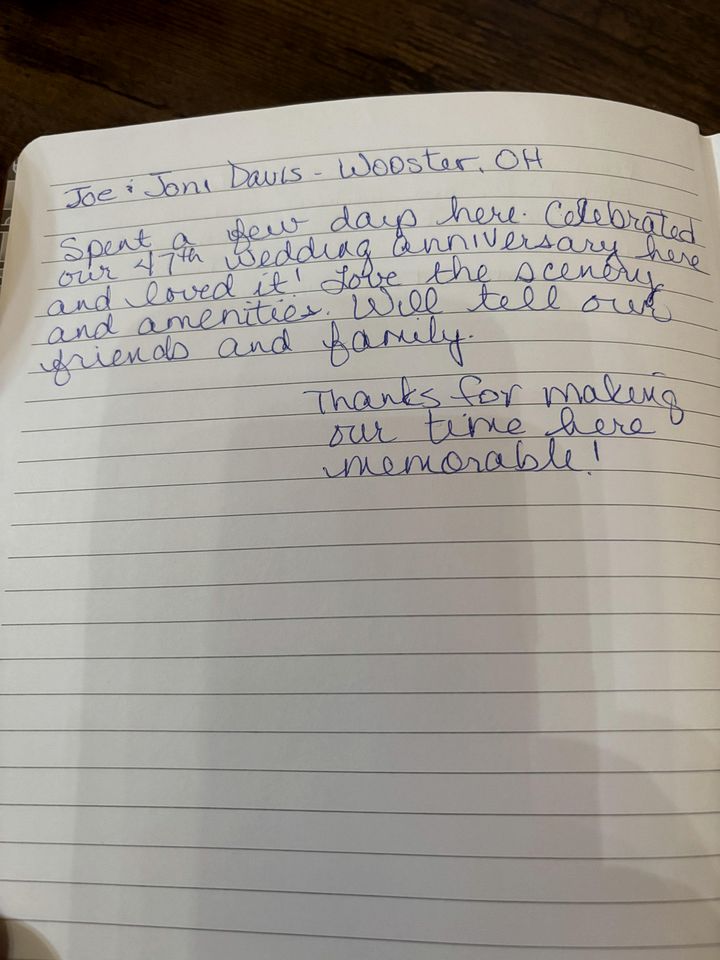 Joe & Joni Davis - Wooster, OH
Spent a few days here. Celebrated
our 47th wedding anniversary here
and loved it! Love the scenery
and amenities. Will tell our
friends and family.
Thanks for making
our time here
memorable!